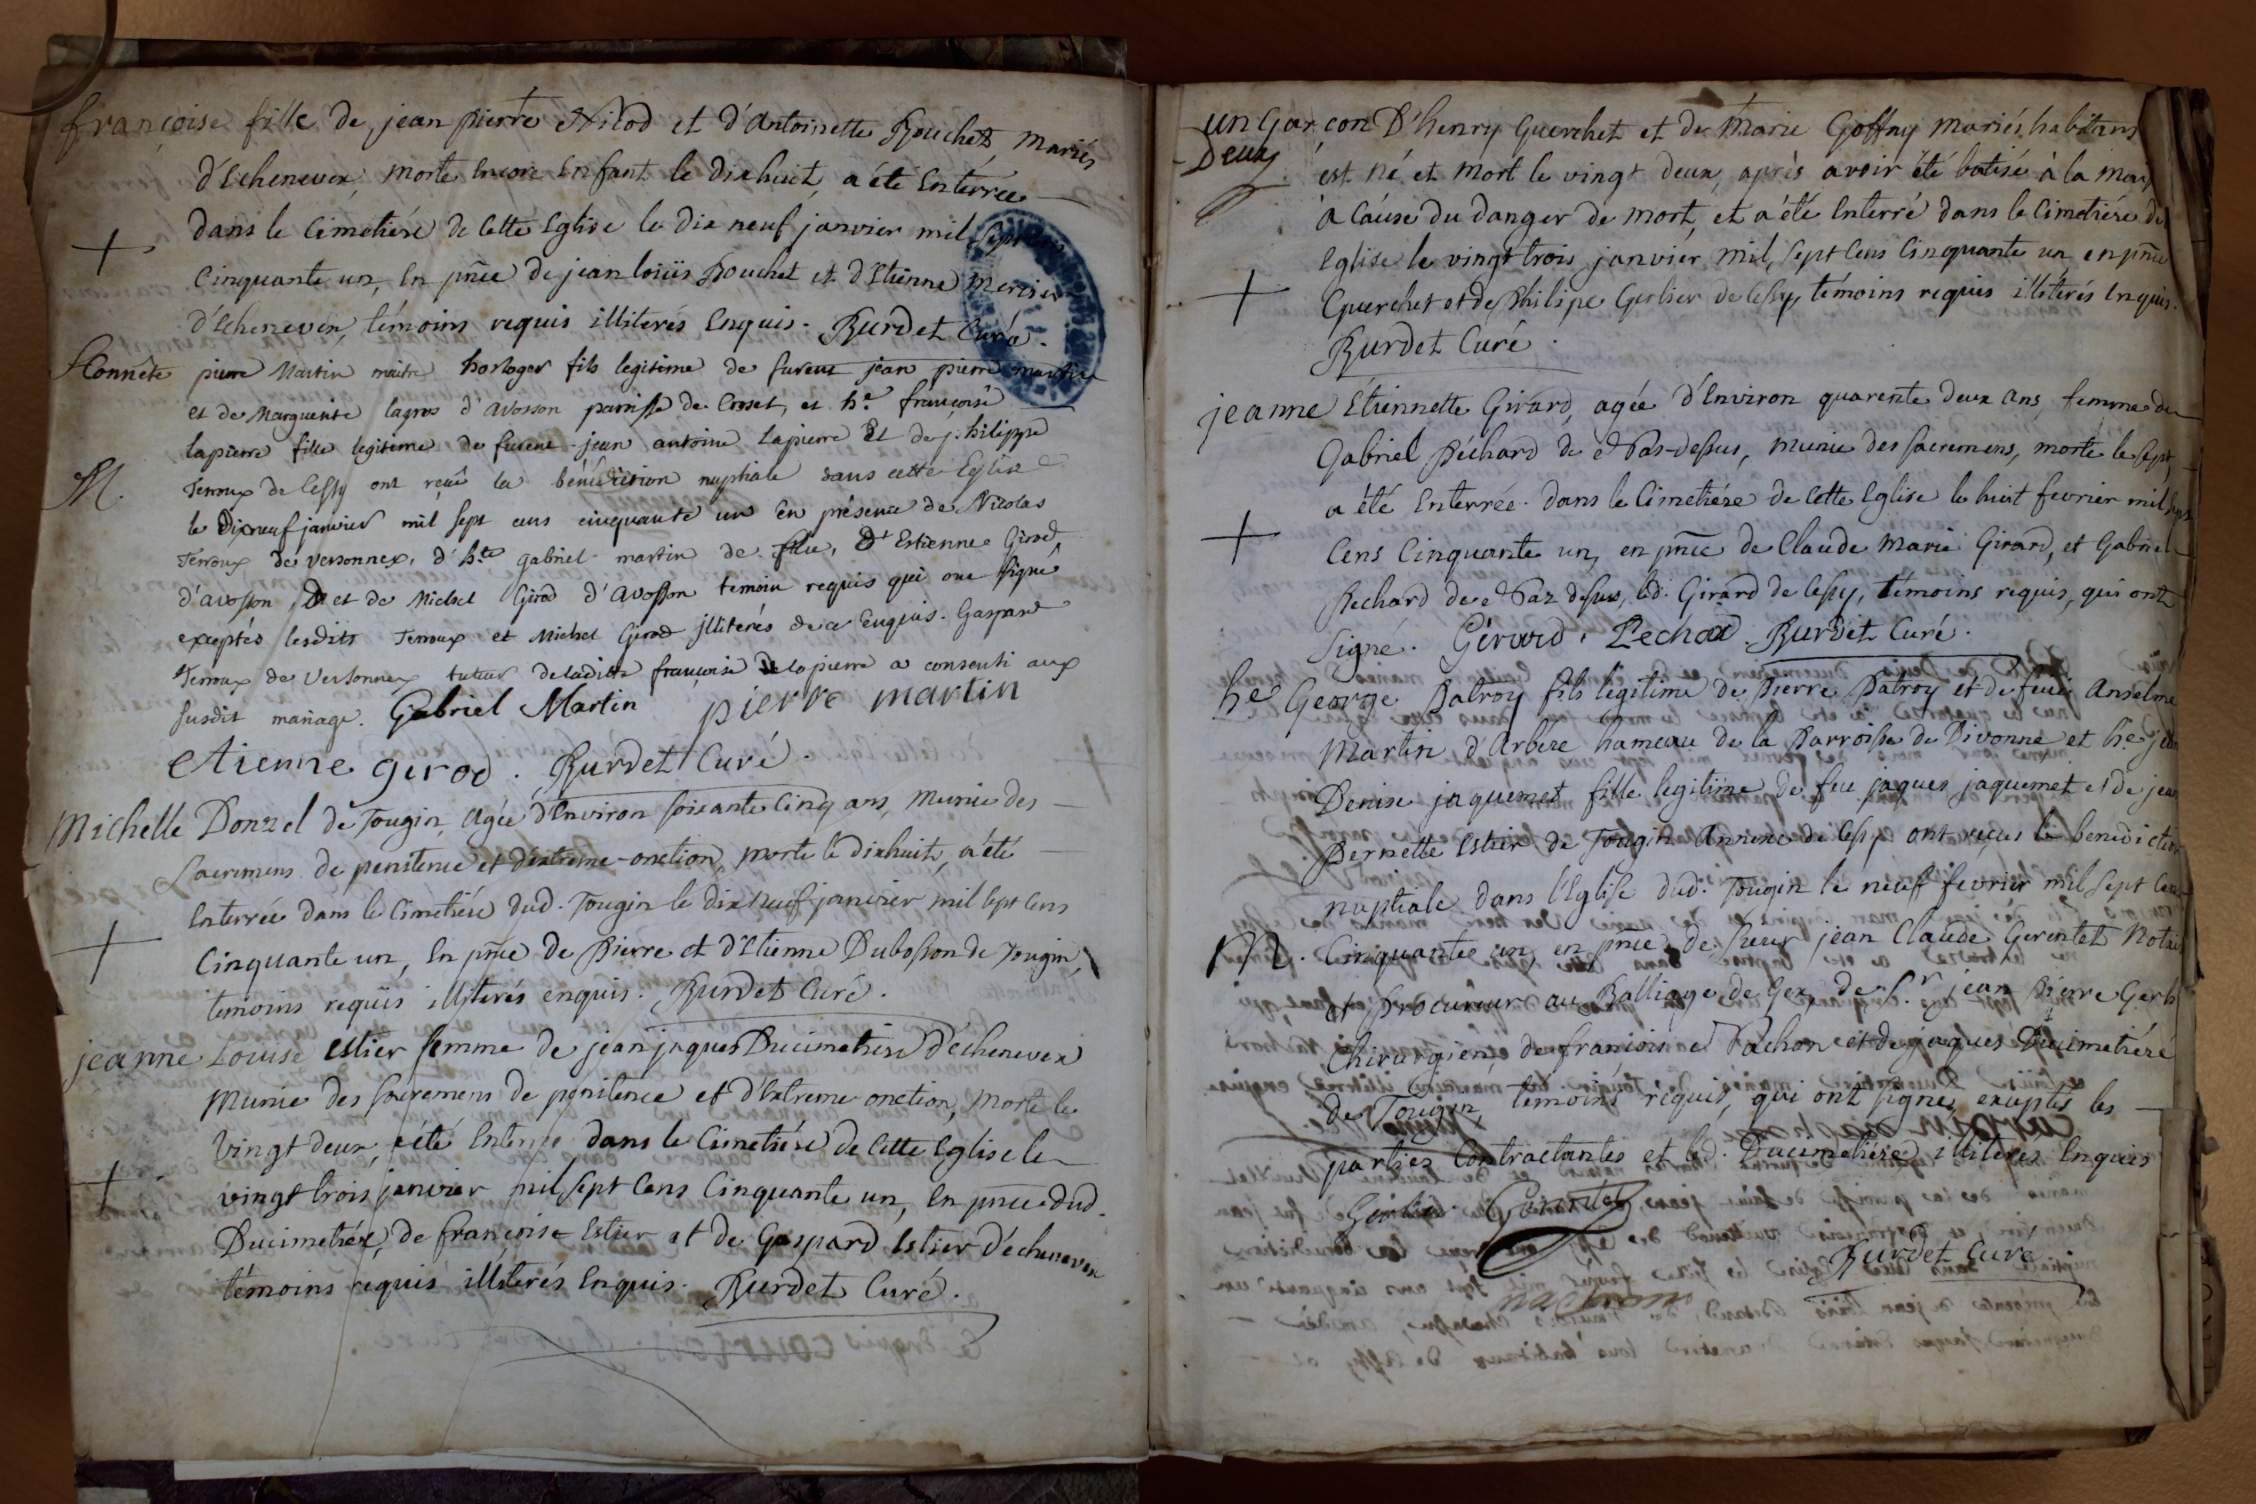 françoise fille de jean pierre Nicod et d'Antoinette Bouchet, Mariés
d'Echenevex, morte encore Enfant le dixhuict, a été Enterrée
dans le Cimetiére de Cette Eglise le dix neuf janvier mil, sept cens
Cinquante un, En pñce de jean loüis Bouchet et d'Etienne Mercier
d'Echenevex, témoins requis illiterés Enquis. Burdet Curé.
Honnête pierre Martin maitre horloger fils legitime de fureut jean pierre martin
et de Marguerite lagros d'Avosson parroisse de Croset, et h.e françoise
lapierre fille legitime de fureut jean antoine lapierre Et de philippe
M. Terroux de Cessy ont reçû la bénédiction nuptiale dans cette Eglise
le Dixneuf janvier mil sept cens cinquante un En présence de Nicolas
Terroux de Versonnex, d'h.te gabriel martin de, D'Estienne Girod
d'avosson et de Michel Girod d'Avosson temoins requis qui ont signé
exceptés lesdits Terroux et Michel Girod jllitérés de ce Enquis. Gaspard
Terroux de Versonnex tuteur de ladite françoise lapierre a consenti aux
susdit mariage. Gabriel Martin pierre martin
etienne girod. Burdet Curé.
Michelle Donzel de Tougin, Agée d'Environ soixante Cinq ans, Munie des
Sacremens de penitence et d'extreme-onction, morte le dixhuit, a été
Enterrée dans le Cimetiére dud. Tougin le dix neuf janvier mil sept Cens
+ Cinquante un, En pñce de Pierre et d'Etienne Dubosson de Tougin,
temoins requis illiterés enquis. Burdet Curé.
jeanne Louise Estier femme de jean jaques Ducimetiére d'échenevex
Munie des sacremens de penitence et d'Extreme onction, Morte le
Vingt deux, a été Enterrée dans le Cimetiére de Cette Eglise le
+ vingt trois janvier mil sept Cens Cinquante un, En pñce dud.
Ducimetiére, de françoise Estier et de Gaspard Estier d'échenevex
témoins requis illiterés Enquis. Burdet Curé.
un Garçon D'henry Guerchet et de Marie Goffny Mariés, habitans
Deux est né et mort le vingt deux, après avoir été batisé à la
à Cause du danger de mort, et a été Enterré dans le Cimetiére de
Eglise le vingt trois janvier, mil, sept Cens Cinquante un en pñce
+ Guerchet et de Philipe Gerlier de Cessy, témoins requis illiterés Enquis.
Burdet Curé.
jeanne Etiennette Girard, agée d'Environ quarente deux ans, femme de
Gabriel Péchard de Pas-dessus, Munie des sacremens, morte le sept,
a été Enterrée dans le Cimetiére de Cette Eglise le huit fevrier mil sept
+ Cens Cinquante un, en pñce de Claude Marie Girard, et Gabriel
Pechard de Paz desus, led. Girard de Cessy, témoins requis, qui ont
Signé. Gérard. Pechad. Burdet Curé.
h.e George Patroy fils légitime de Pierre Patroy et de feüe Anselme
Martin d'Arbere hameau de la Parroisse de Divonne et h.e
Denise jaquemet fille legitime de feu jaques jaquemet et de jean
Pernette Estier de Tougin Annexe de Cessy ont reçus la benediction
nuptiale dans l'Eglise dud. Tougin le neuf fevrier mil sept Cens
M. Cinquante un, en pñce de sieur jean Claude Gerentet Notaire
et procureur au Balliage de Gex, de S.r jean Pierre
Chirurgien, de françois Nachon et de jaques Ducimetiére
de Tougin, témoins requis, qui ont signé, exceptés les
parties Contractantes et led. Ducimetiére illiterés Enquis
Gerentet
Burdet Curé
nachon